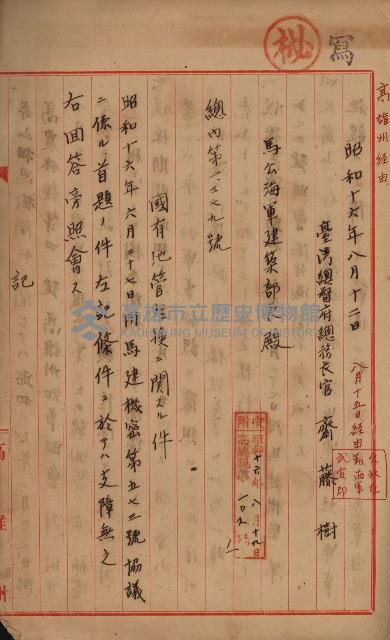 寫
秘
高雄州経由
昭和十六年八月十二日
臺灣總督府總務長官 齋藤樹
八月十五日経由
馬公海軍建築部長殿
總內第一二七九號
國有地管換ニ関スル件
昭和十六年六月二十七日附馬建機密第五七三號協議
ニ係ル首題ノ件左記條件ニ於テハ支障無之
右回答旁照會ス
記
高雄市立歷史博物館
KAOHSIUNG MUSEUM OF HISTORY
高雄州